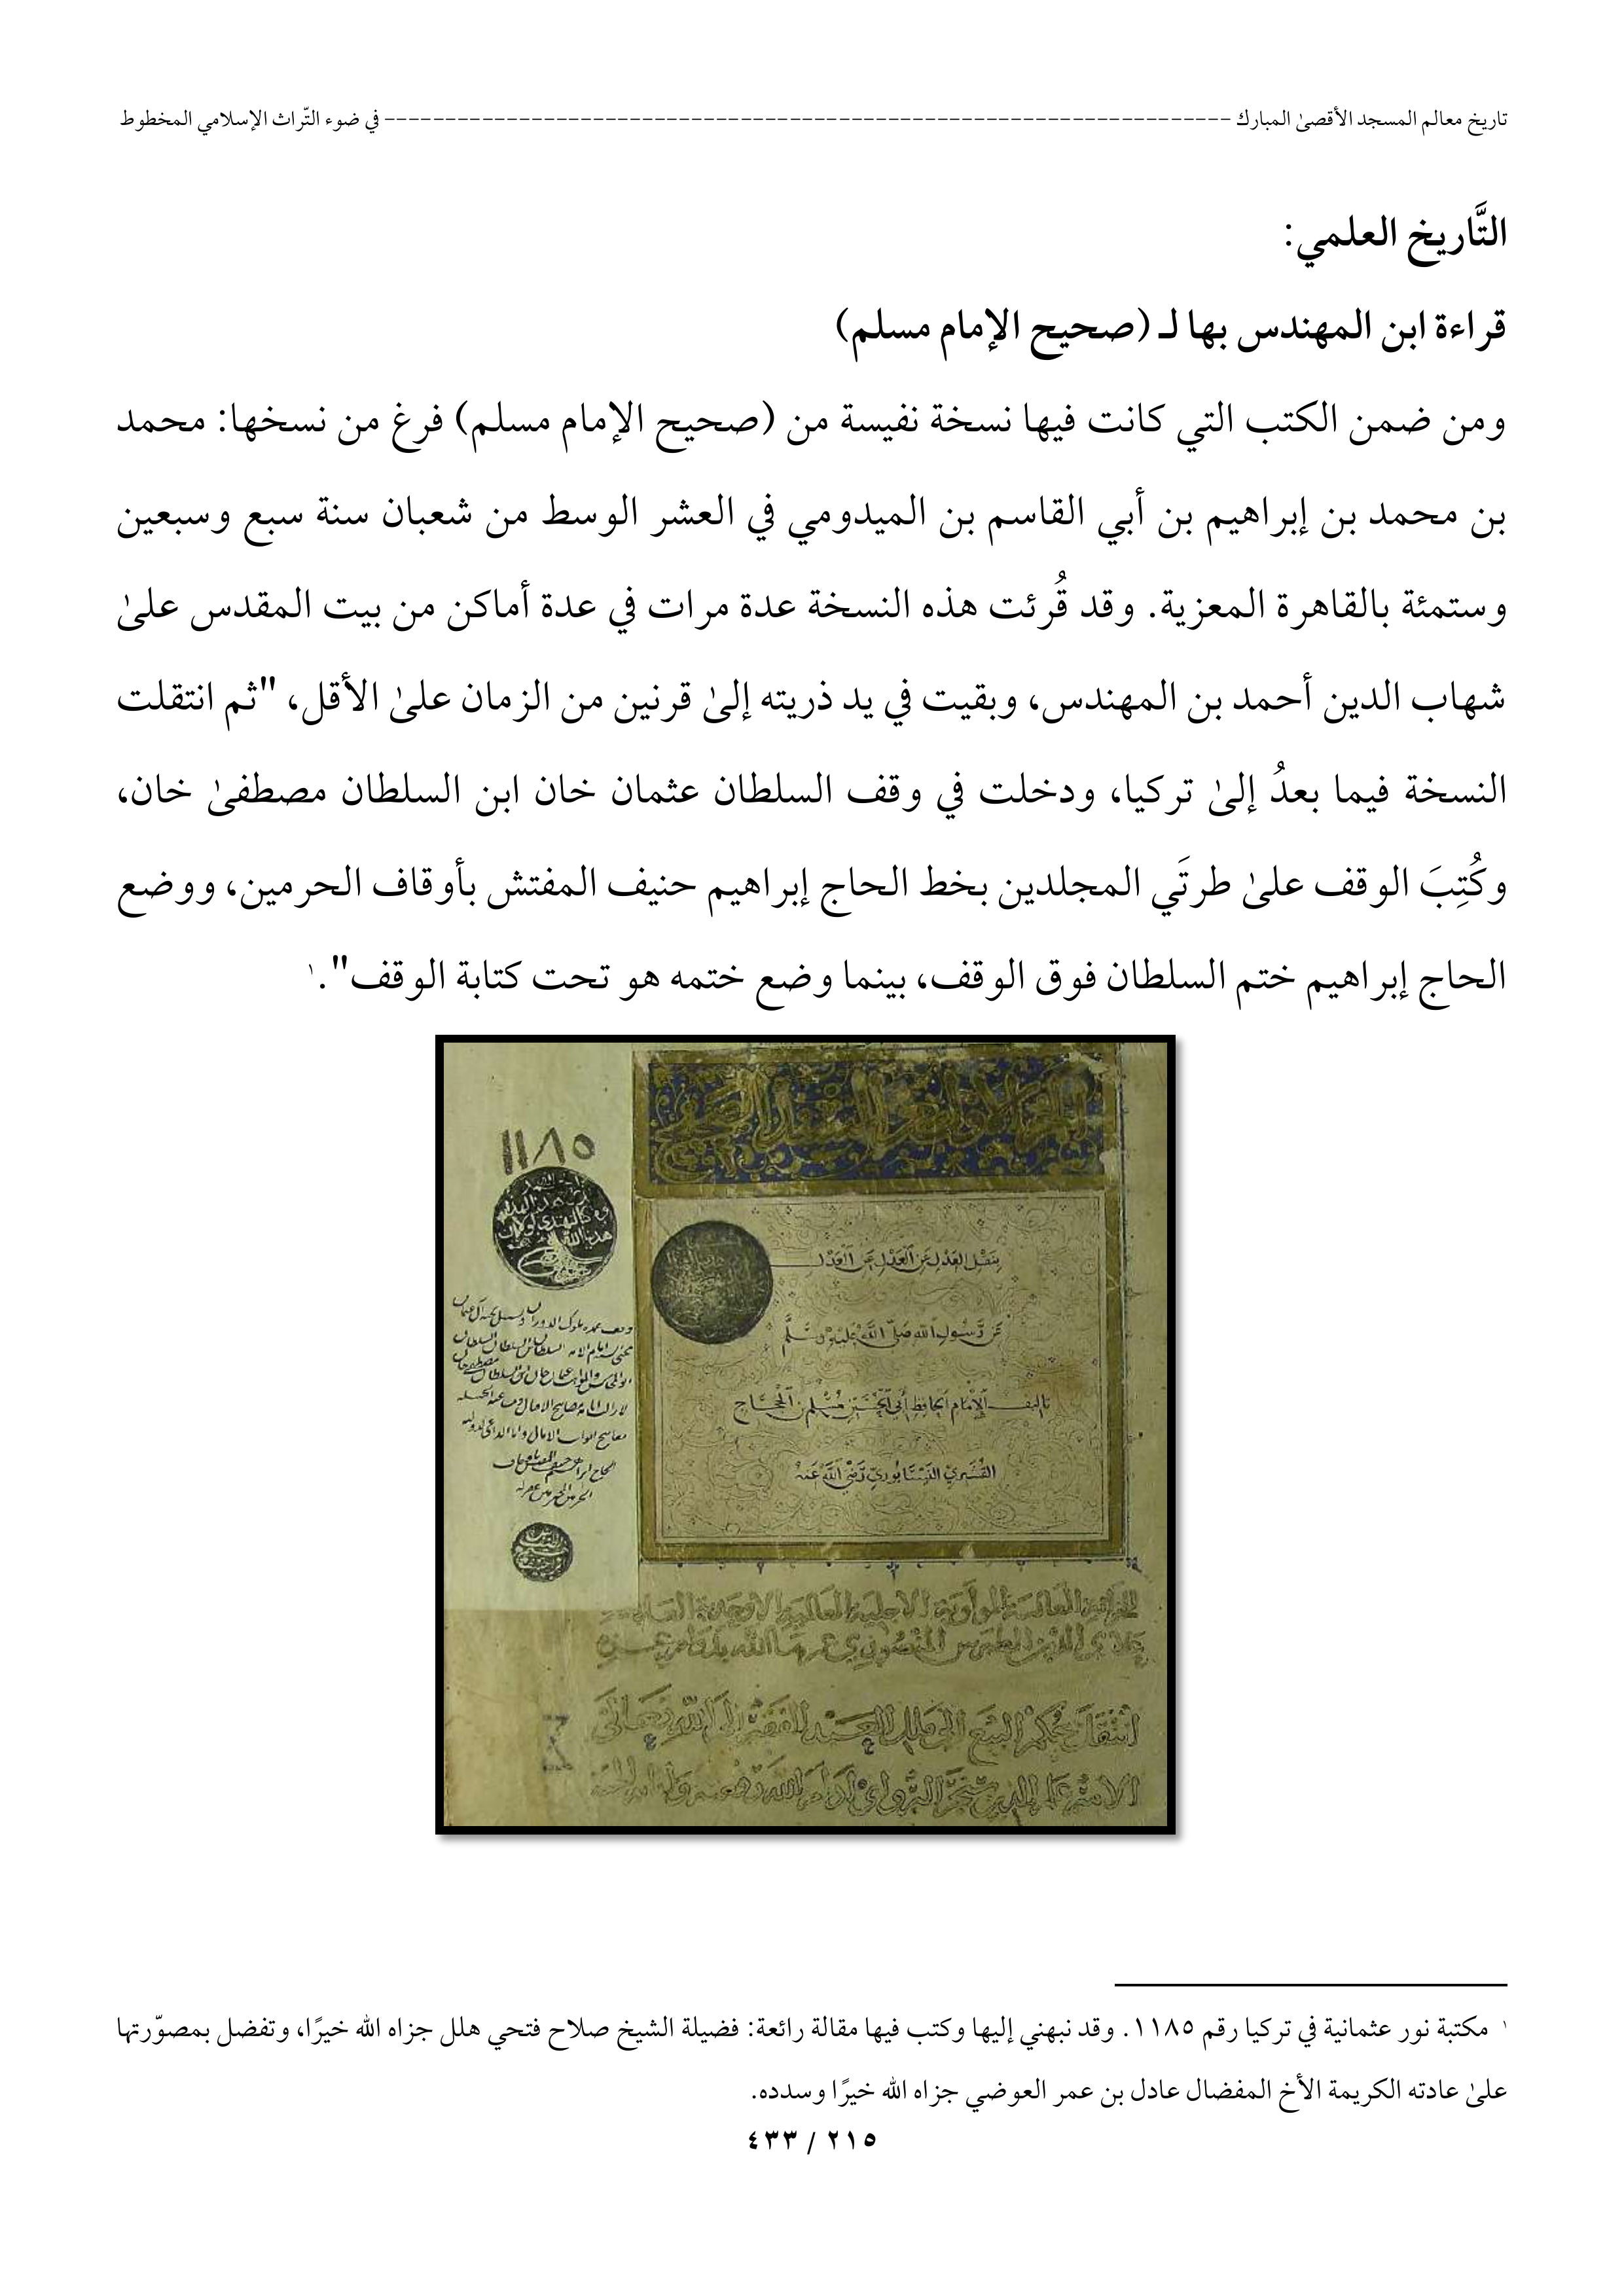 تاريخ معالم المسجد الأقصىٰ المبارك ---------------------------------------------------------------------- في ضوء التّراث الإسلامي المخطوط
التَّاريخ العلمي:
قراءة ابن المهندس بها لـ (صحيح الإمام مسلم)
ومن ضمن الكتب التي كانت فيها نسخة نفيسة من (صحيح الإمام مسلم) فرغ من نسخها: محمد
بن محمد بن إبراهيم بن أبي القاسم بن الميدومي في العشر الوسط من شعبان سنة سبع وسبعين
وستمئة بالقاهرة المعزية. وقد قُرئت هذه النسخة عدة مرات في عدة أماكن من بيت المقدس علىٰ
شهاب الدين أحمد بن المهندس، وبقيت في يد ذريته إلىٰ قرنين من الزمان علىٰ الأقل، "ثم انتقلت
النسخة فيما بعدُ إلىٰ تركيا، ودخلت في وقف السلطان عثمان خان ابن السلطان مصطفىٰ خان،
وكُتِبَ الوقف علىٰ طرتَي المجلدين بخط الحاج إبراهيم حنيف المفتش بأوقاف الحرمين، ووضع
الحاج إبراهيم ختم السلطان فوق الوقف، بينما وضع ختمه هو تحت كتابة الوقف".١
١١٨٥
بنقل العدل عن العدل عن العدل
عن رسول الله صلى الله عليه وسلم
تأليف الإمام الحافظ أبي الحسين مسلم بن الحجاج
القشيري النيسابوري رضي الله عنه
انتقل بحكم البيع إلى ملك العبد الفقير إلى الله تعالى
١ مكتبة نور عثمانية في تركيا رقم ١١٨٥. وقد نبهني إليها وكتب فيها مقالة رائعة: فضيلة الشيخ صلاح فتحي هلل جزاه الله خيرًا، وتفضل بمصوّرتها
علىٰ عادته الكريمة الأخ المفضال عادل بن عمر العوضي جزاه الله خيرًا وسدده.
٢١٥ / ٤٣٣